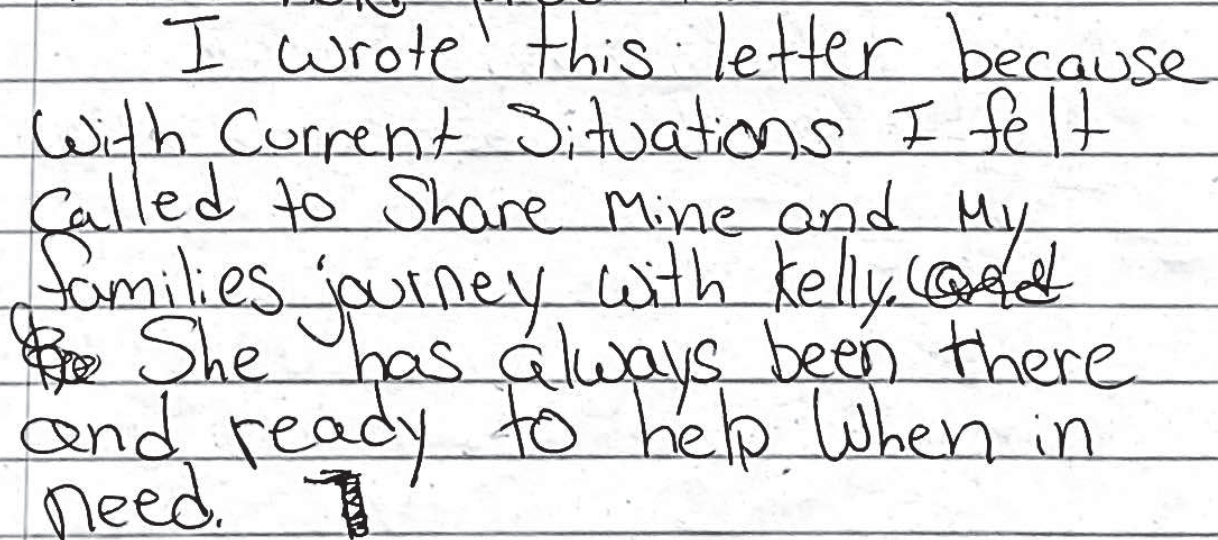 I wrote this letter because
with current situations I felt
called to share mine and my
families journey with Kelly.
She has always been there
and ready to help when in
need.